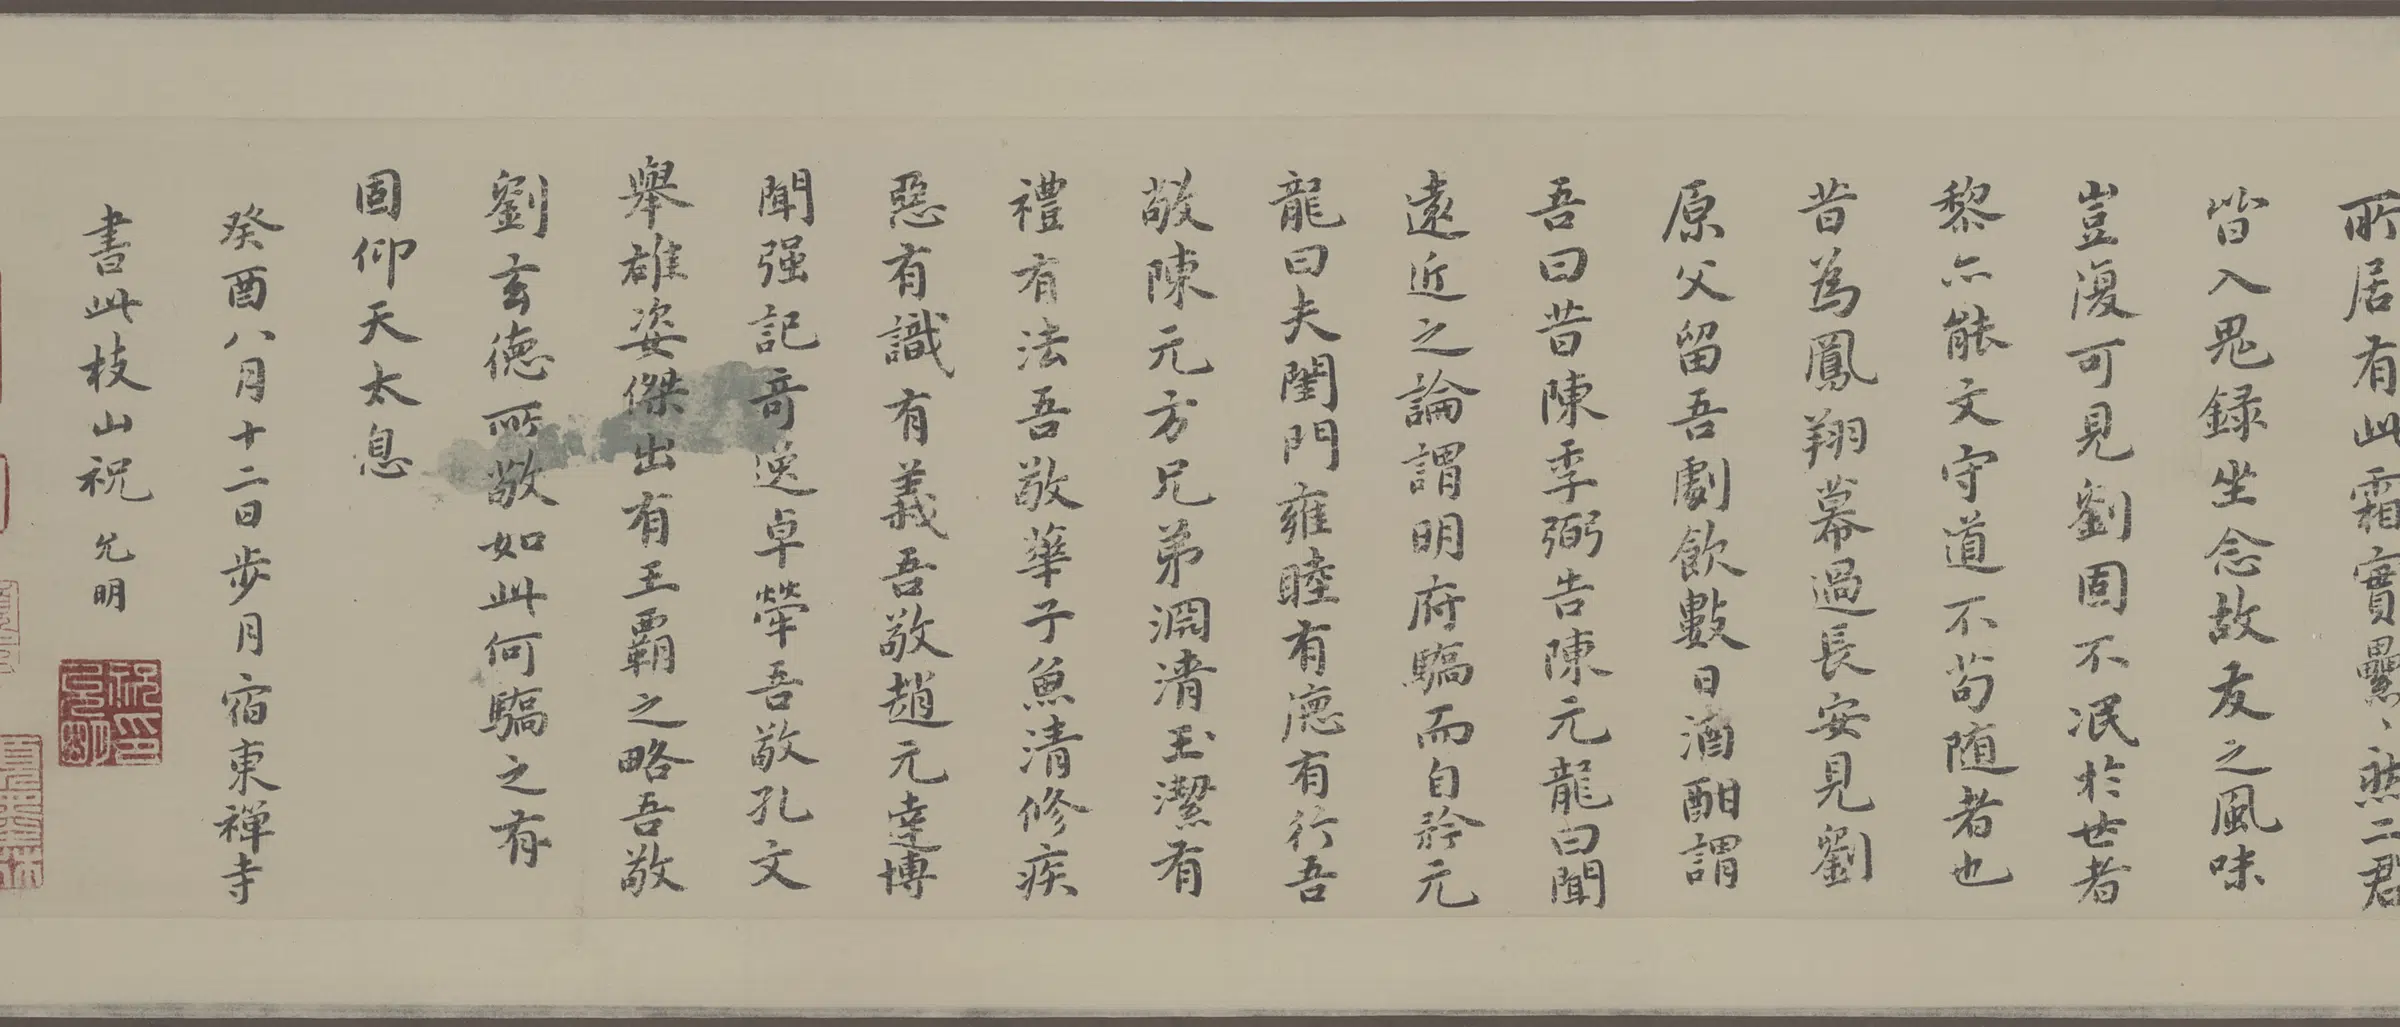 所居有此霜實纍、然二君
皆入鬼録坐念故友之風味
豈復可見劉固不泯於世者
黎亦能文守道不苟随者也
昔為鳳翔幕過長安見劉
原父留吾劇飲數日酒酣謂
吾曰昔陳季弼告陳元龍曰聞
遠近之論謂明府驕而自矜元
龍曰夫閨門雍睦有德有行吾
敬陳元方兄弟淵清玉潔有
禮有法吾敬華子魚清修疾
惡有識有義吾敬趙元達博
聞强記奇逸卓犖吾敬孔文
舉雄姿傑出有王霸之略吾敬
劉玄徳所敬如此何驕之有
固仰天太息
癸酉八月十二日步月宿東禅寺
書此枝山祝允明
祝印允明